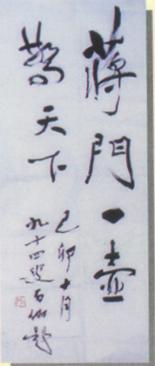 蔣門一壺
驚天下
己卯十月
九十四叟石伽題